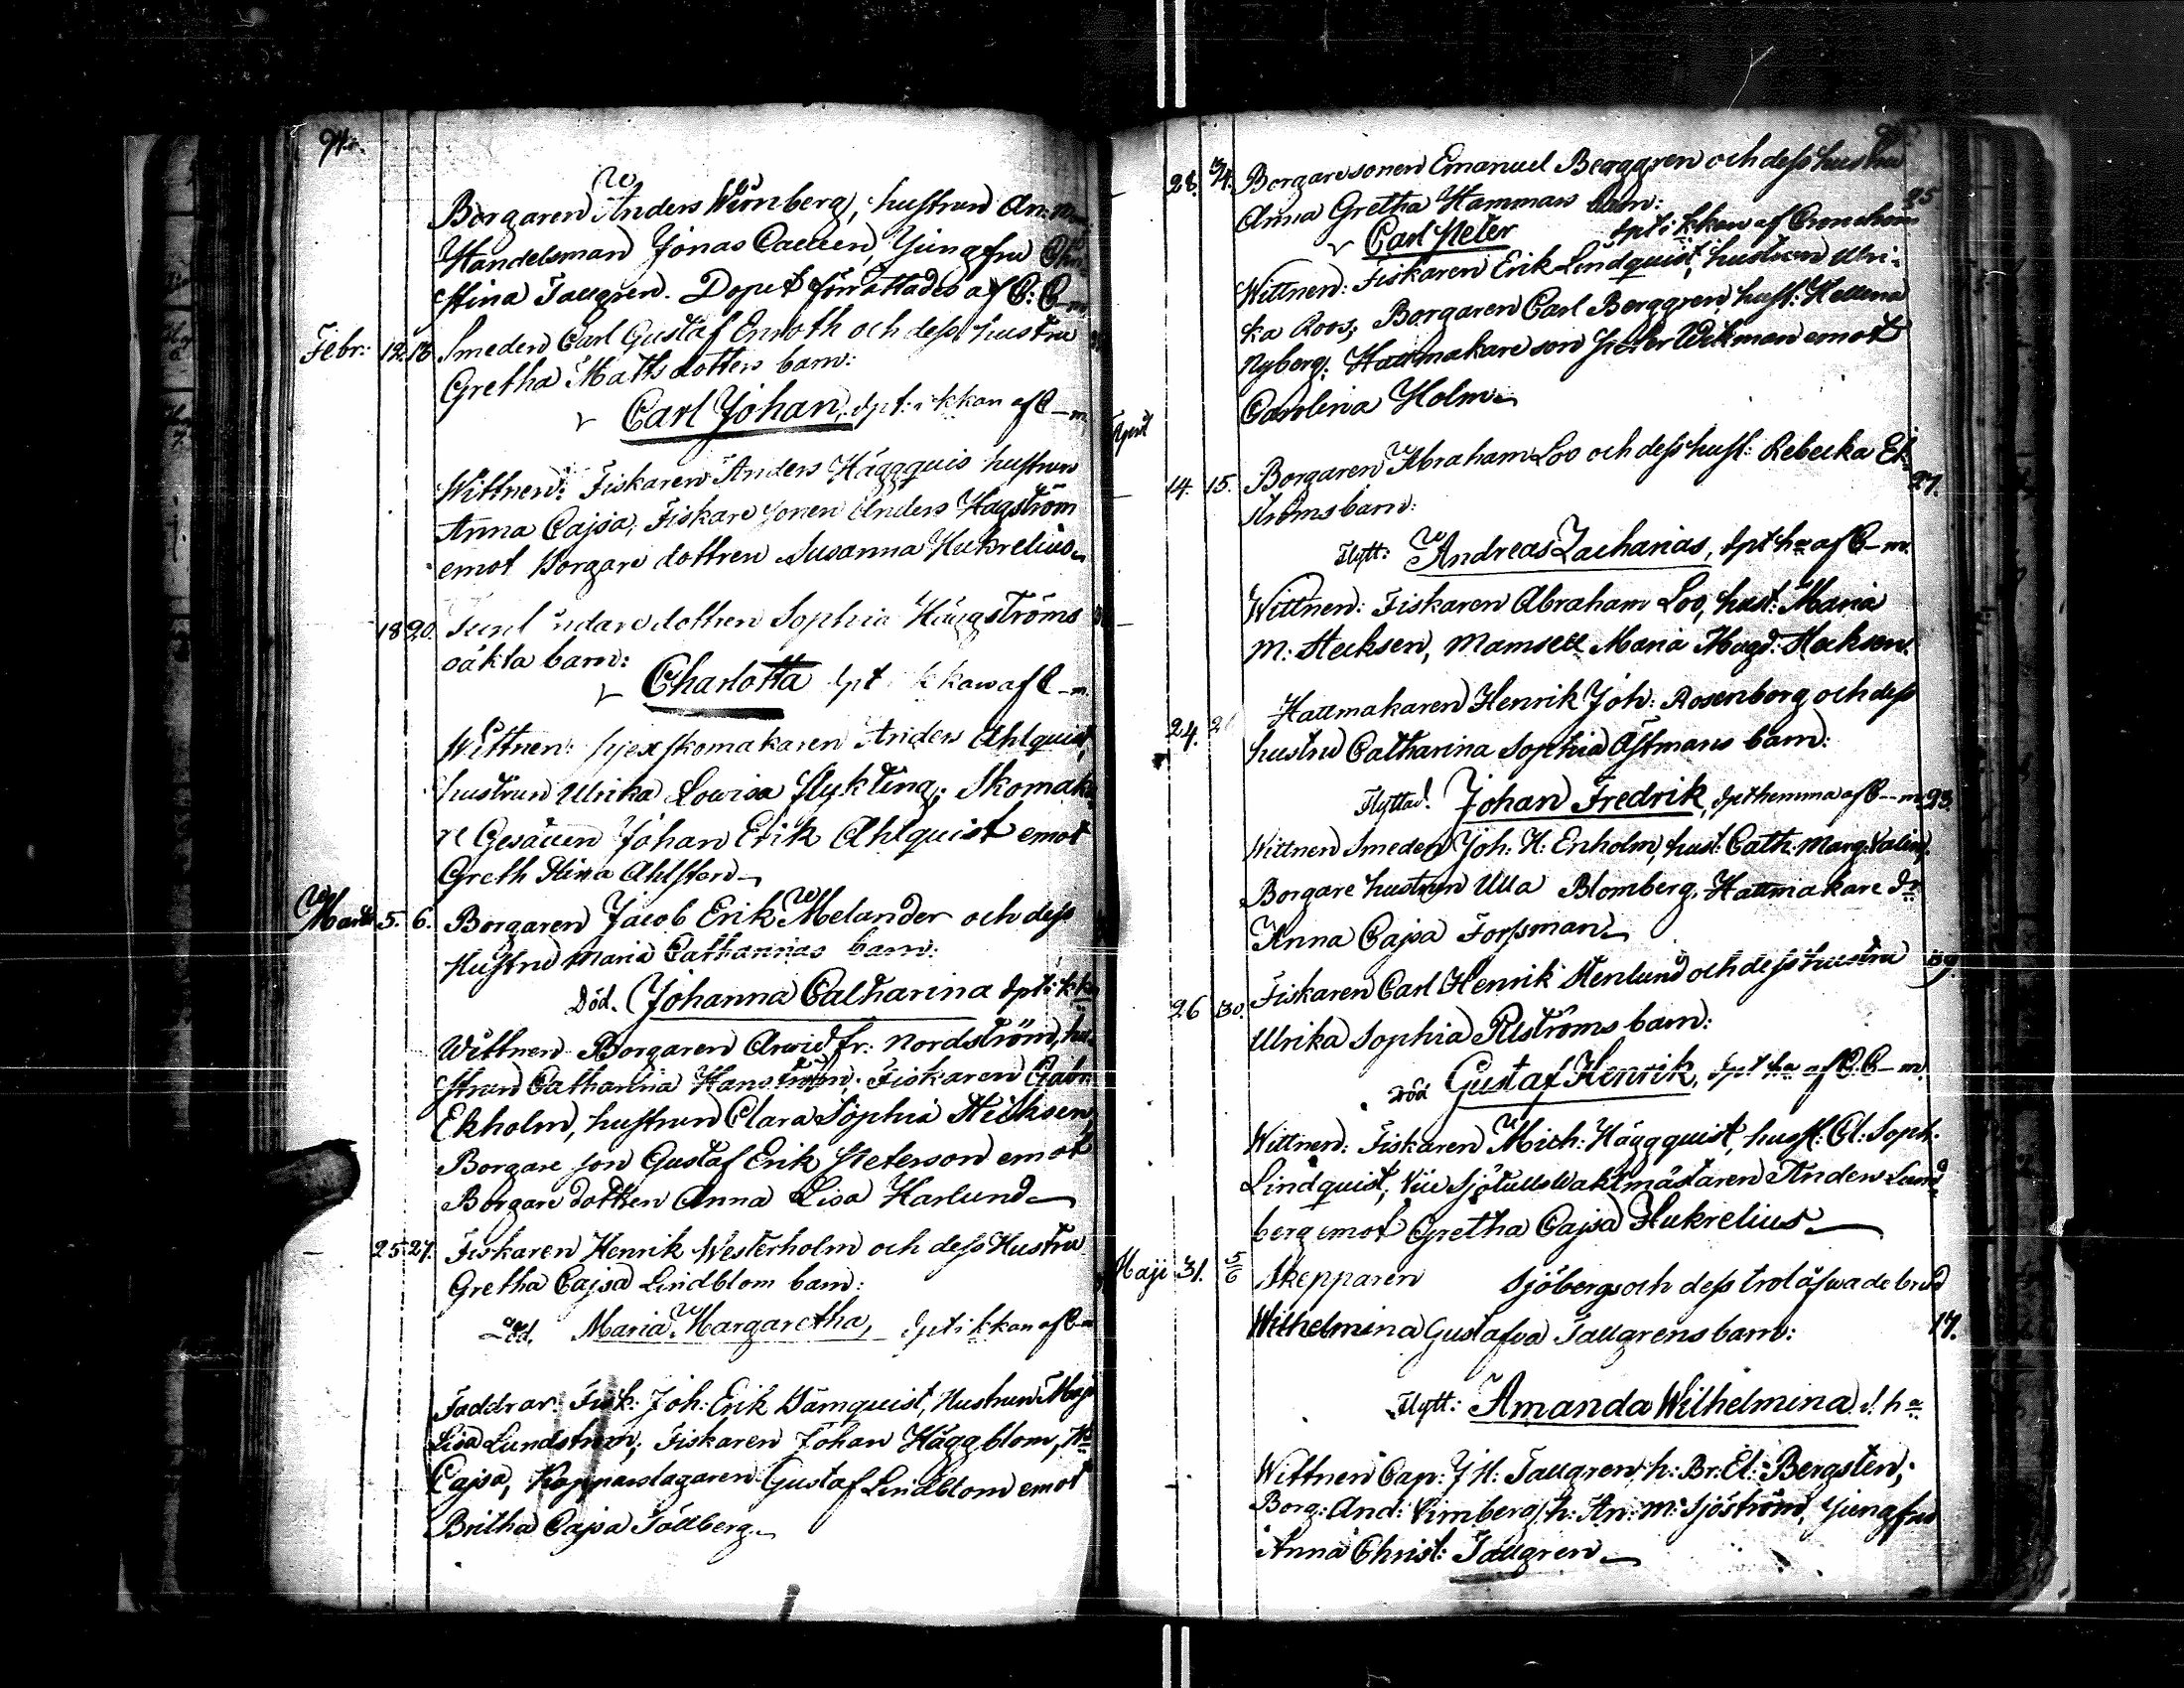 94.
Borgaren Anders Wirnberg, hustrun An: M:
Handelsman Jonas Caven, Jungfru Chri-
stina Tallgren. Dopet förrättades af C: C-m
Febr: 12. 16 Smeden Carl Gustaf Enroth och dess hustru
Gretha Mattsdotters barn:
Carl Johan, dpt: i kkan af C-m
Wittnen: Fiskaren Anders Häggquis hustrun
Anna Cajsa, Fiskare sonen Anders Hagström
emot Borgare dottren Susanna Hukrelius
18 20. dottren Sophia Häggströms
oäkta barn:
Charlotta dpt kkan af C-m
Wittnen: skomakaren Anders Ahlquist,
hustrun Ulrika Lowisa Flykting; Skomaka
re Gesällen Johan Erik Ahlquist emot
Greth Stina Ahlsten
Marti 5. 6. Borgaren Jacob Erik Melander och dess
Hustru Maria Catharinas barn:
Död. Johanna Catharina dpt i kk
Wittnen Borgaren Arvid Fr: Nordström, hu-
strun Catharina Hanström. Fiskaren Gabr
Ekholm, hustrun Clara Sophia Stecksen
Borgare son Gustaf Erik Peterson emot
Borgare dottren Anna Lisa Harlund
25 27. Fiskaren Henrik Westerholm och dess Hustru
Gretha Cajsa Lindblom barn:
Död. Maria Margaretha, dpt i kkan af C-m
Faddrar: Fisk: Joh: Erik Damquist, Hustrun Maja
Lisa Lundström; Fiskaren Johan Häggblom, H
Cajsa, Kopparslagaren Gustaf Lindblom emot
Britha Cajsa Tollberg
28. 3/4. Borgaresonen Emanuel Berggren och dess hustru
Anna Gretha Hammars barn: 25
Carl Peter dpt i kkan af
Wittnen: Fiskaren Erik Lindquist, hustrun Ulri-
ka Roos; Borgaren Carl Berggren, hust: Hellena
Nyberg; Hattmakare son Peter Wikman emot
Carolina Holm
April
14. 15. Borgaren Abraham Loo och dess hust: Rebecka Ek-
ströms barn: 27.
Flytt: Andreas Zacharias, dpt ha af C-m.
Wittnen: Fiskaren Abraham Loo, hust: Maria
M: Stecksen, Mamsell Maria Magd: Stecksen.
24. Hattmakaren Henrik Joh: Rosenborg och dess
hustru Catharina Sophia Åstmans barn:
Flyttad. Johan Fredrik, dpt hemma af C-m 23.
Wittnen Smeden Joh: H: Enholm, hust: Cath: Marg: Valin,
Borgare hustrun Ulla Blomberg, Hattmakare dr
Anna Cajsa Forssman
26 30. Fiskaren Carl Henrik Stenlund och dess hustru 39
Ulrika Sophia Piströms barn:
Död Gustaf Henrik, dpt ha af C. C-m
Wittnen: Fiskaren Mich: Häggquist, hust: Cl: Soph:
Lindquist, Vice Sjötullswaktmästaren Anders Lund-
berg emot Gretha Cajsa Hukrelius
Maji 31. 5/6 Skepparen Sjöbergs och dess trolofwade brud
Wilhelmina Gustafva Tallgrens barn: 17.
Flytt: Amanda Wilhelmina d. ha
Wittnen Cap: J H: Tallgren, h: Br: El: Bergsten;
Borg: And: Virnberg, h: An: M: Sjöström, Jungfru
Anna Christ: Tallgren